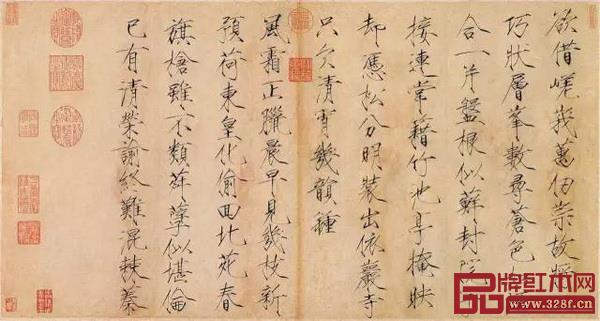 欲借嵯峨萬仞崇故將
巧狀層峯數尋蒼色
合一片盤根似蘚封院
接連常藉竹池亭掩映
却憑松分明裝出依巖寺
只欠清宵幾韻鍾
風霜正臘晨早見幾枝新
預荷東皇化偷回北苑春
旗槍雖不類似堪倫
已有清榮諭終難混棘蓁
品牌红木网
www.328f.com